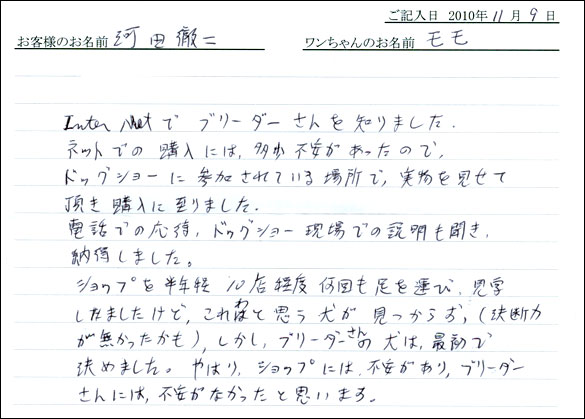 ご記入日 2010年11月9日
お客様のお名前 河田徹二 ワンちゃんのお名前 モモ
Inter Netで ブリーダーさんを知りました.
ネットでの購入には,多少不安があったので,
ドッグショーに参加されている場所で,実物を見せて
頂き購入に至りました.
電話での応待,ドッグショー現場での説明も聞き,
納得しました。
ショップを半年経 10店程度何回も足を運び,見学
しましたけど,これわと思う犬が見つからず,(決断力
が無かったかも),しかし,ブリーダーさんの犬は,最初で
決めました。やはり,ショップには,不安があり,ブリーダー
さんには,不安がなかったと思います。